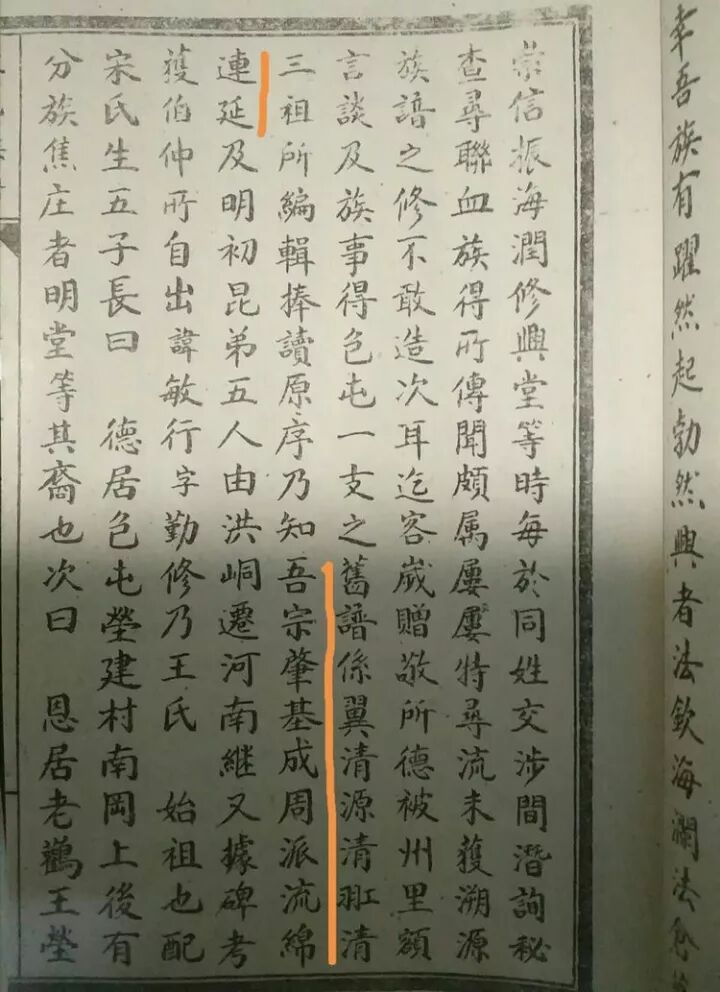 幸吾族有躍然起勃然興者法欽海瀾法
崇信振海潤修興堂等時每於同姓交涉間潛詢秘
查尋聯血族得所傳聞頗属屢屢特尋流未獲溯源
族譜之修不敢造次耳迄客歲贈敬所德被州里額
言談及族事得色屯一支之舊譜係翼清源清羾清
三祖所編輯捧讀原序乃知吾宗肇基成周派流綿
連延及明初昆弟五人由洪峒遷河南繼又據碑考
獲伯仲所自出諱敏行字勤修乃王氏 始祖也配
宋氏生五子長曰 德居色屯塋建村南岡上後有
分族焦庄者明堂等其裔也次曰 恩居老鸛王塋